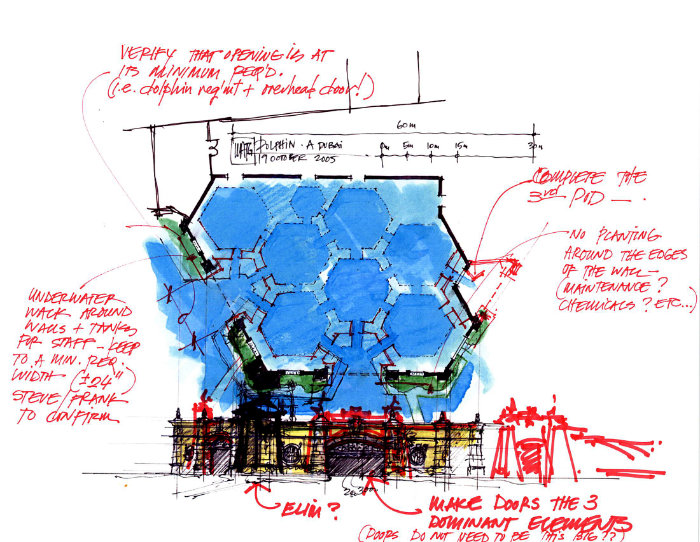 VERIFY THAT OPENING IS AT
ITS MINIMUM REQ'D.
(i.e. dolphin reqmt + overhead door!)
60m
WATG
DOLPHIN · A DUBAI
19 OCTOBER 2005
0m 5m 10m 15m 30m
COMPLETE THE
3rd POD —.
NO PLANTING
AROUND THE EDGES
OF THE WALL —
(MAINTENANCE?
CHEMICALS? ETC...)
UNDERWATER
WALK AROUND
WALLS + TANKS
FOR STAFF — KEEP
TO A MIN. REQ.
WIDTH (±24"
STEVE/FRANK
TO CONFIRM
ELIM?
MAKE DOORS THE 3
DOMINANT ELEMENTS
(DOORS DO NOT NEED TO BE THIS BIG??)